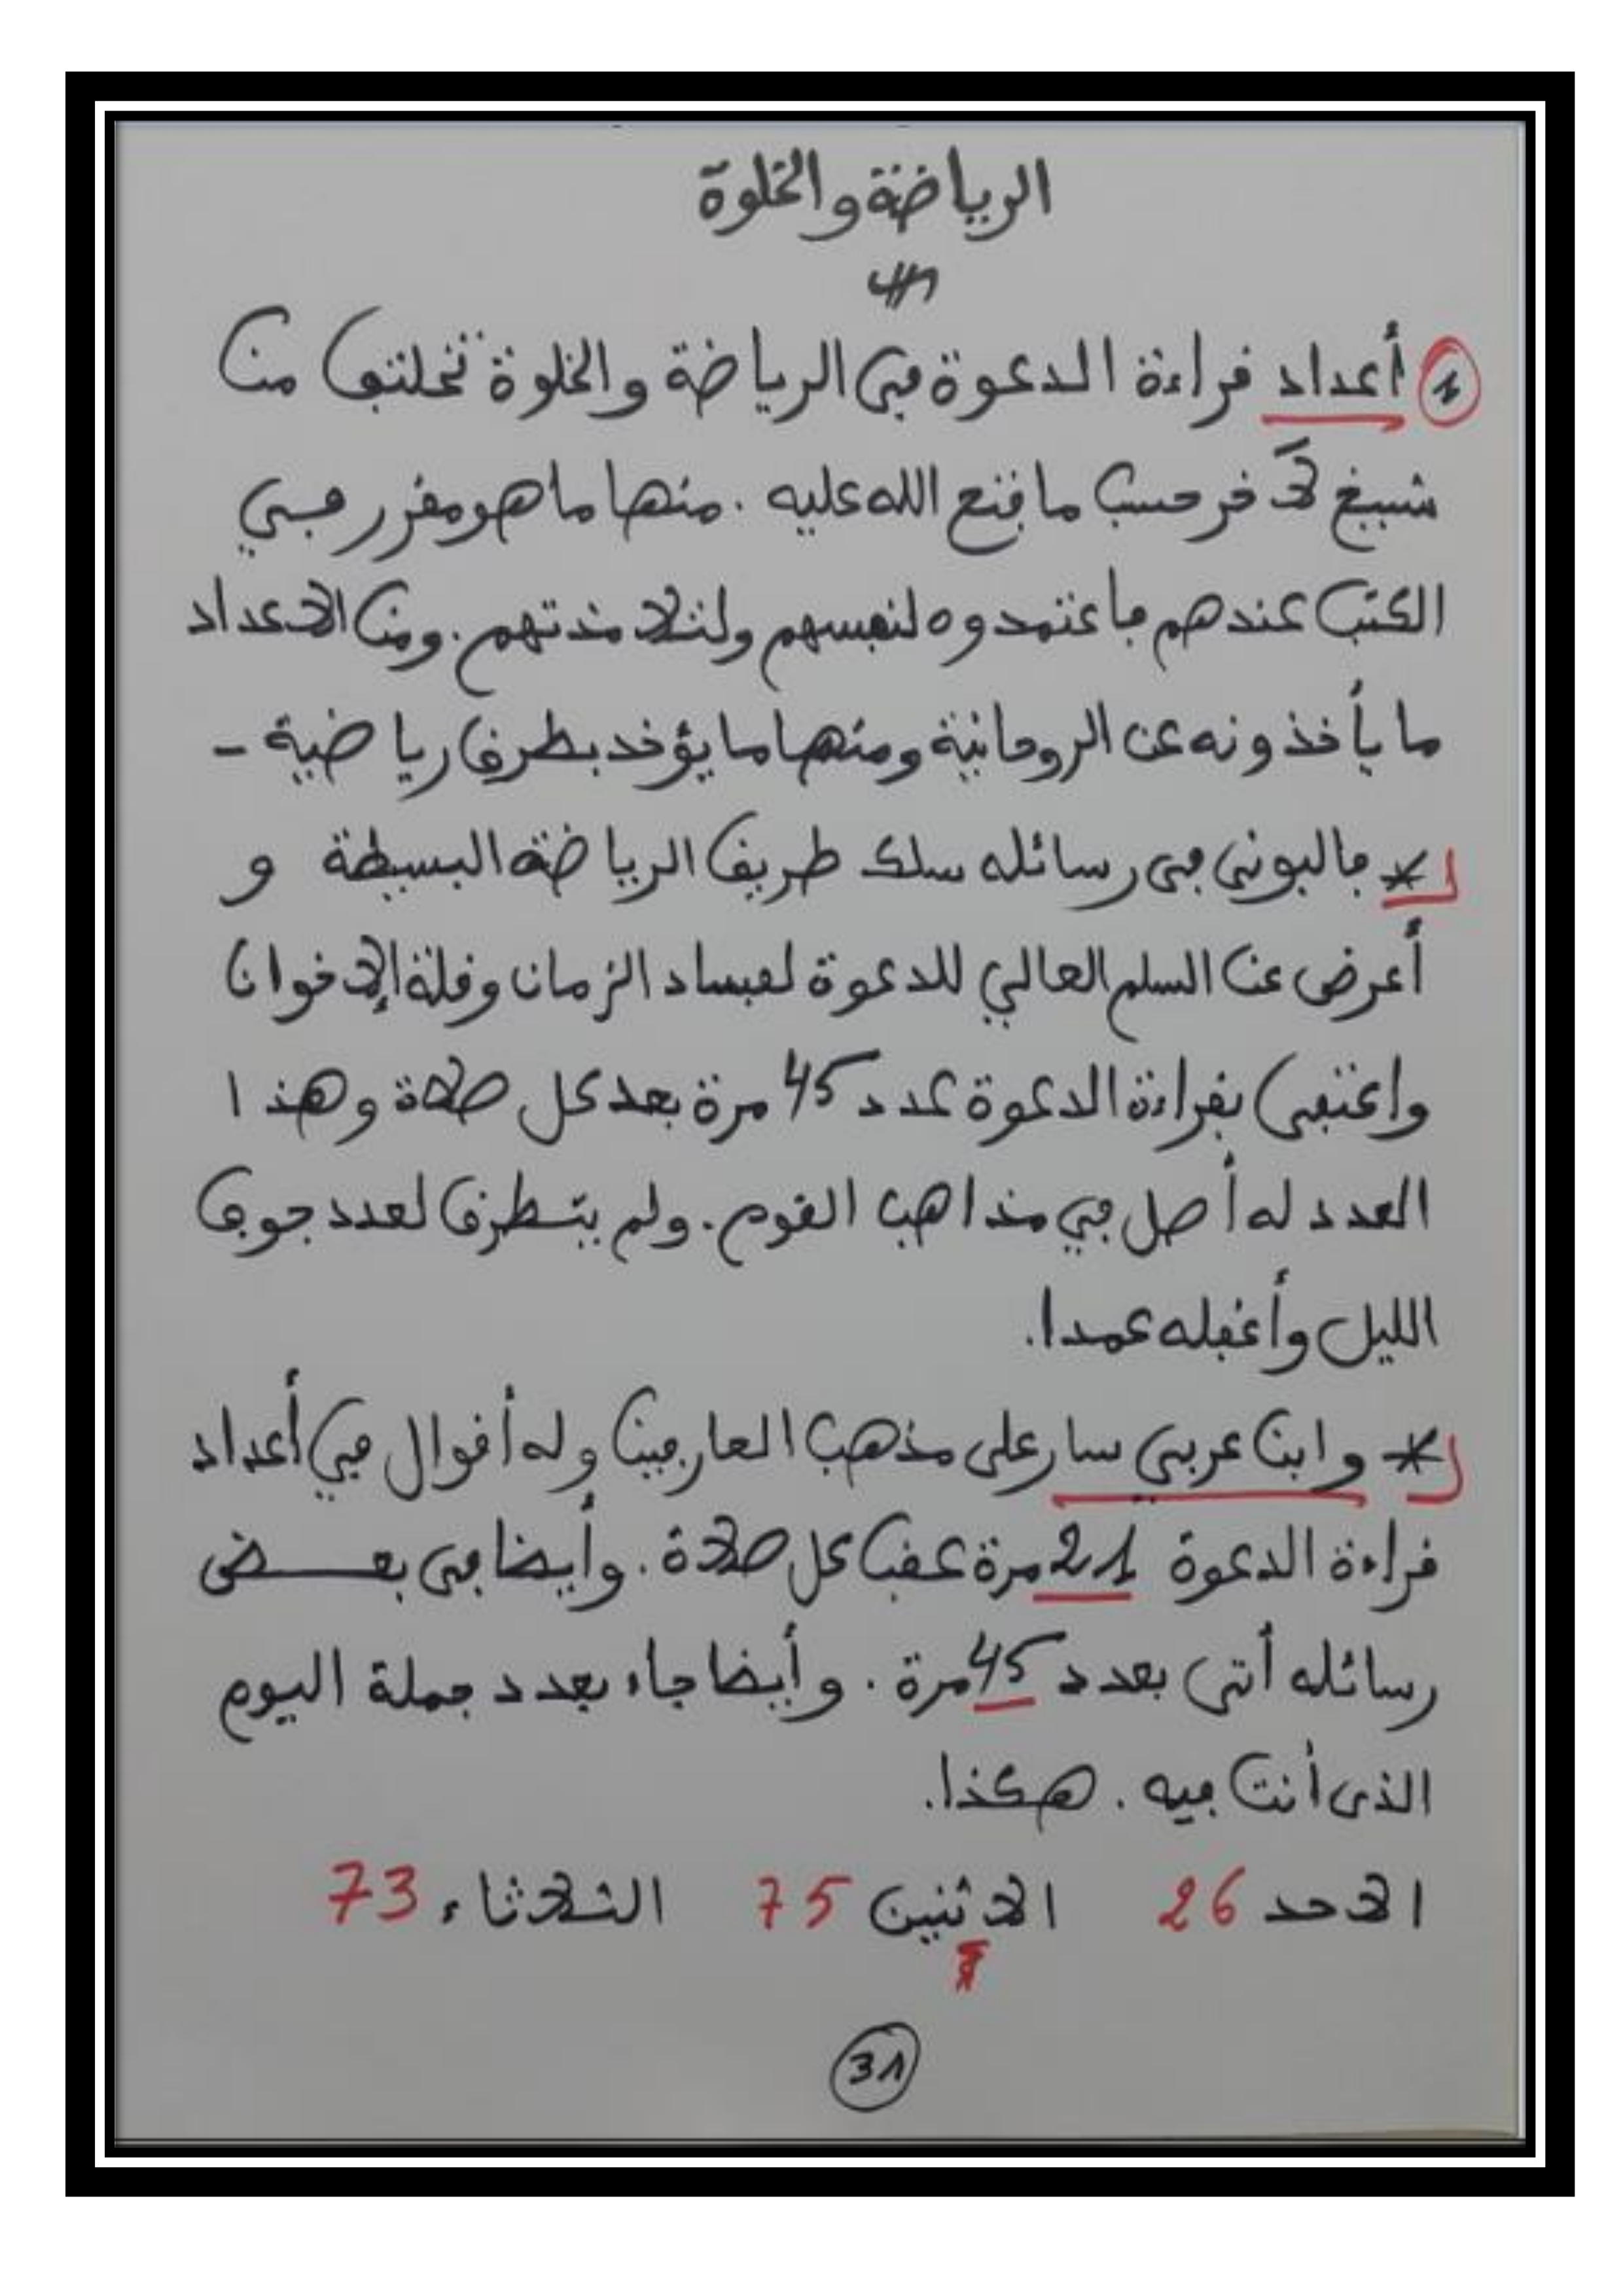 الرياضة والخلوة
① أعداد قراءة الدعوة في الرياضة والخلوة تختلف من
شيخ لآخر حسب ما فتح الله عليه . منها ما هو مقرر في
الكتب عندهم فاعتمدوه لنفسهم ولتلامذتهم . ومن الاعداد
ما يأخذونه عن الروحانية ومنها ما يؤخد بطرق رياضية -
* فالبوني في رسائله سلك طريق الرياضة البسيطة و
أعرض عن السلم العالي للدعوة لفساد الزمان وقلة الإخوان
واكتفى بقراءة الدعوة عدد 45 مرة بعد كل صلاة وهذا
العدد له أصل في مذاهب القوم . ولم يتطرق لعدد جوف
الليل وأغفله عمدا .
* وابن عربي سار على مذهب العارفين وله أقوال في أعداد
قراءة الدعوة 21 مرة عقب كل صلاة . وأيضا في بعض
رسائله أتى بعدد 45 مرة . وأيضا جاء بعدد جملة اليوم
الذى أنت فيه . هكذا .
الاحد 26 الاثنين 75 الثلاثاء 73
31